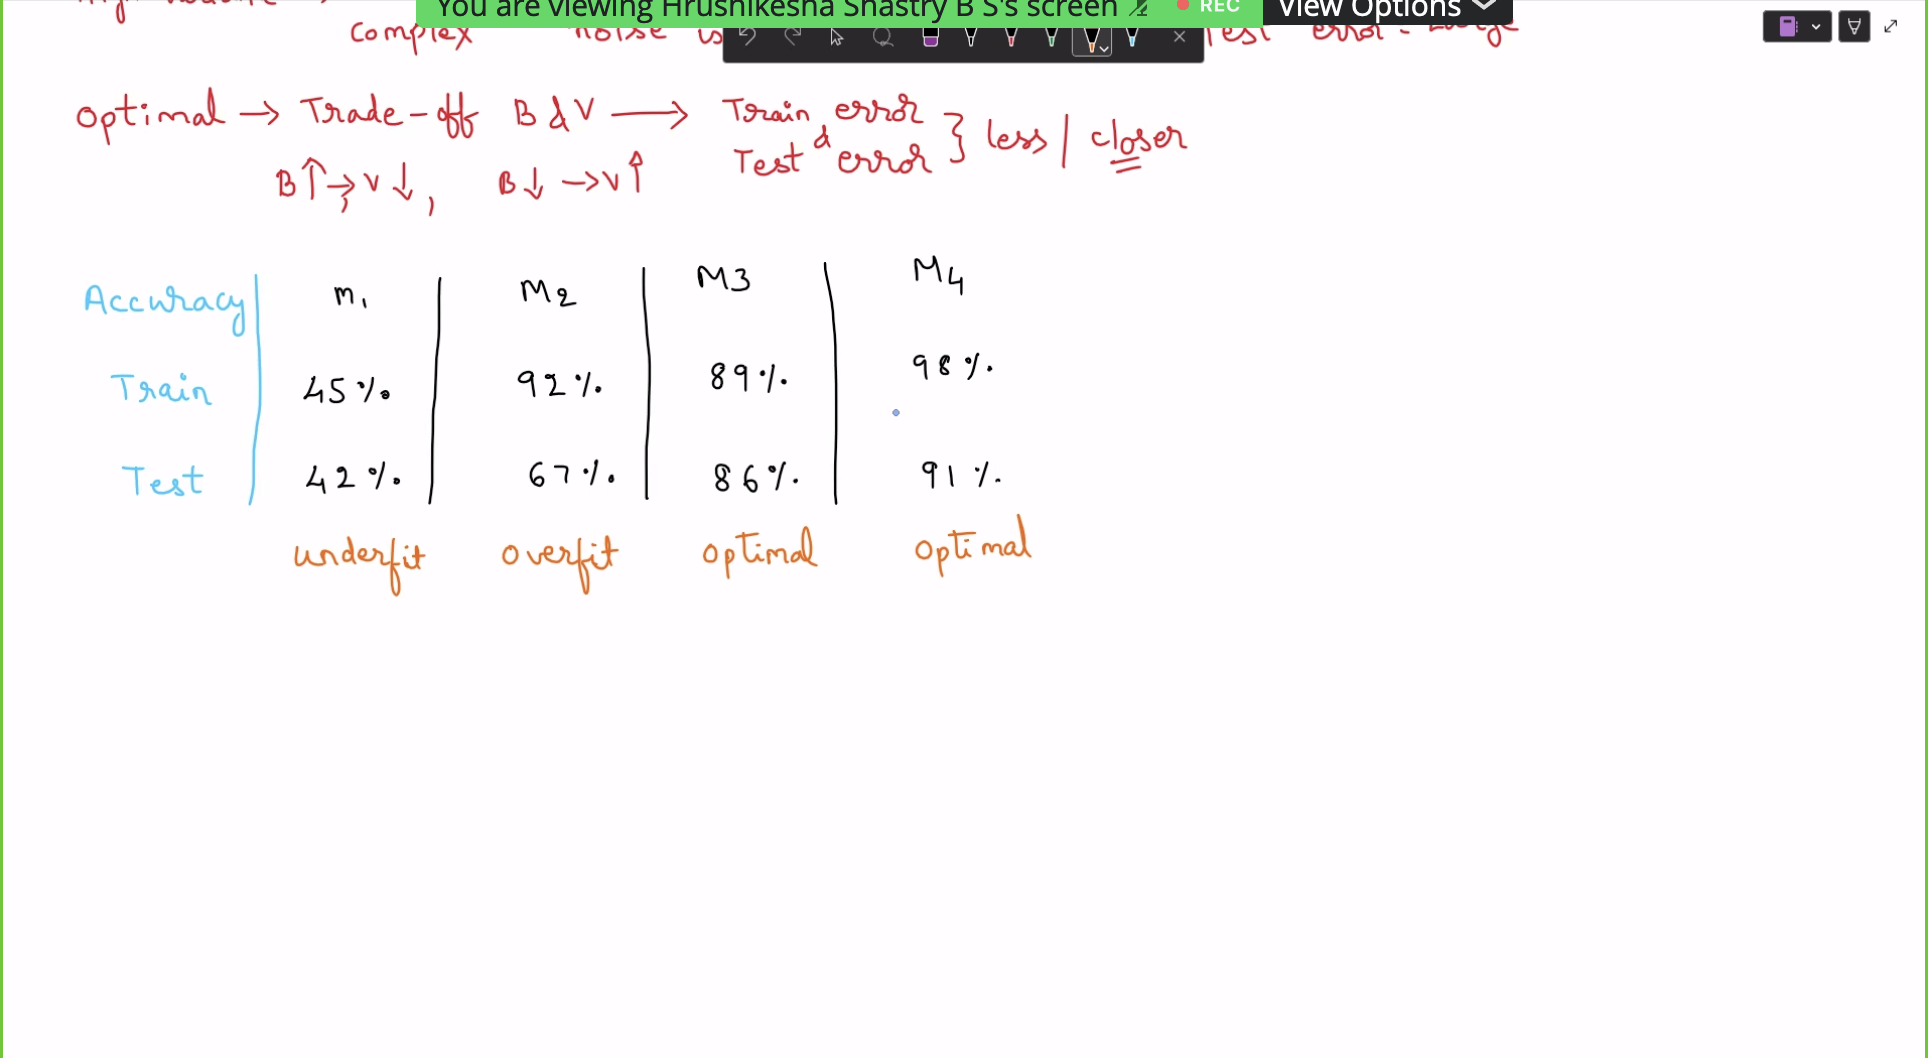 You are viewing Hrushikesha Shastry B S's screen REC View Options
complex noise is Test error - Large
optimal → Trade-off B & V → Train error & Test error } less / closer
B↑ → V↓, B↓ → V↑
Accuracy m1 M2 M3 M4
Train 45% 92% 89% 98%
Test 42% 67% 86% 91%
underfit overfit optimal optimal